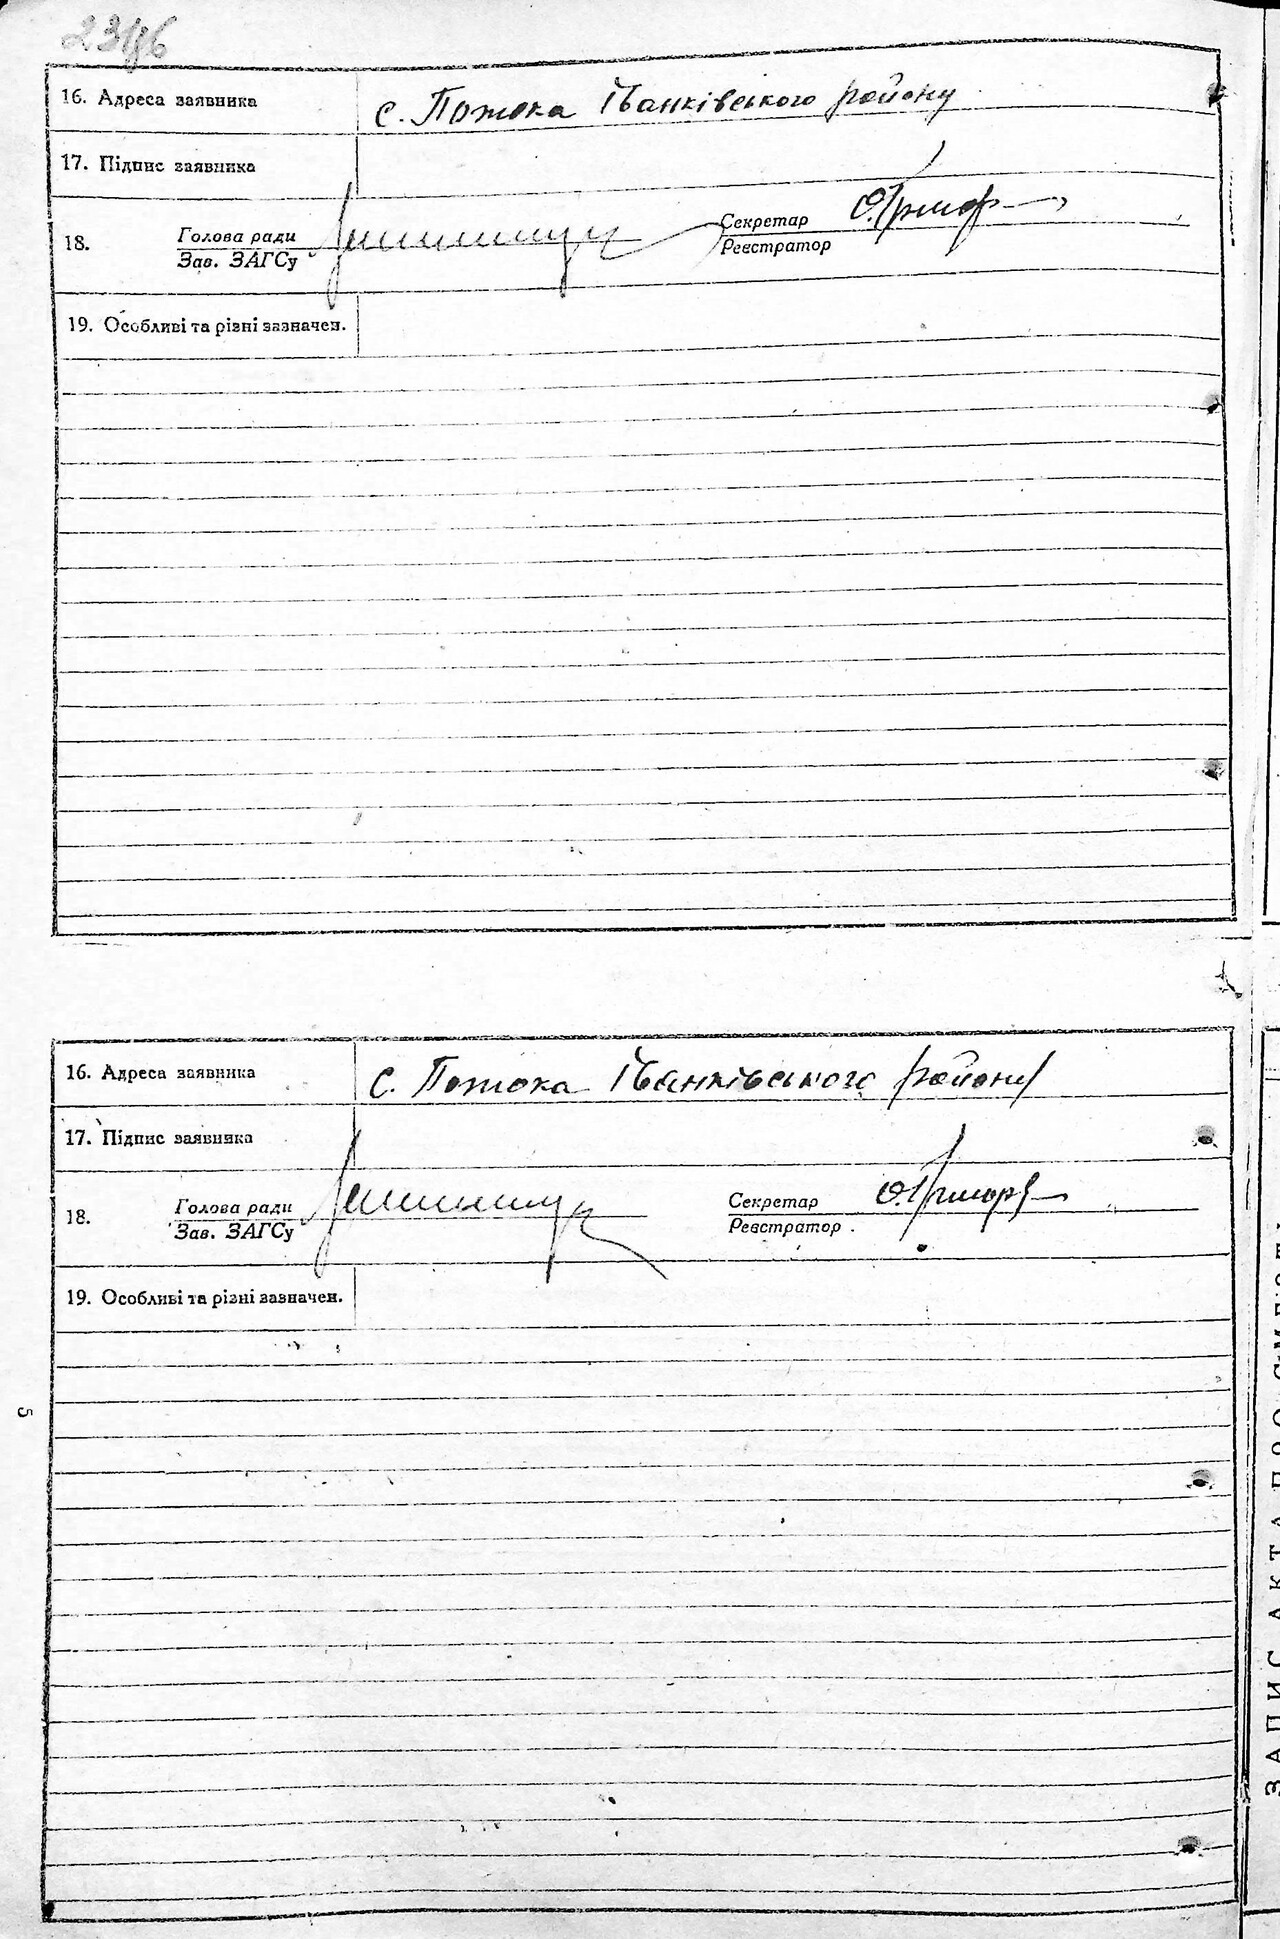 16. Адреса заявника с. Потока Іванківського району
17. Підпис заявника
18. Голова ради Секретар
Зав. ЗАГСу Реєстратор
19. Особливі та різні зазначен.
16. Адреса заявника с. Потока Іванківського району
17. Підпис заявника
18. Голова ради Секретар
Зав. ЗАГСу Реєстратор
19. Особливі та різні зазначен.
5
ЗАПИС АКТА ПРО СМЕРТЬ